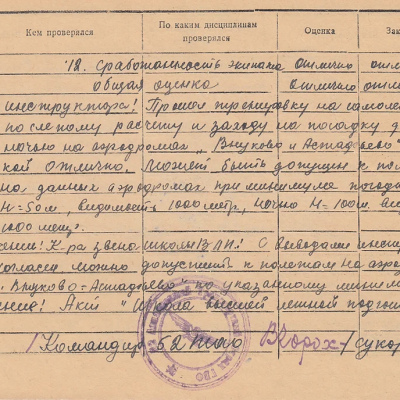 Кем проверялся
По каким дисциплинам проверялся
Оценка
Зак
12. Сработанность экипажа отлично отли
общая оценка отлично отли
инструктора! Прошел тренировку на самоле
по слепому расчету и заходу на посадку д
ночью на аэродромах „Внуково и Астафьево"
кой отлично. Может быть допущен к пол
на данных аэродромах при минимуме погоды
Н=50м, видимость 1000 метр., ночью Н=100м. вид
1000 метр.
К-ра звена школы ВЛП. С выводами инст
согласен можно допустить к полетам на аэро
Внуково - Астафьево по указанному миним
школа высшей летной подгот
/Командир 52